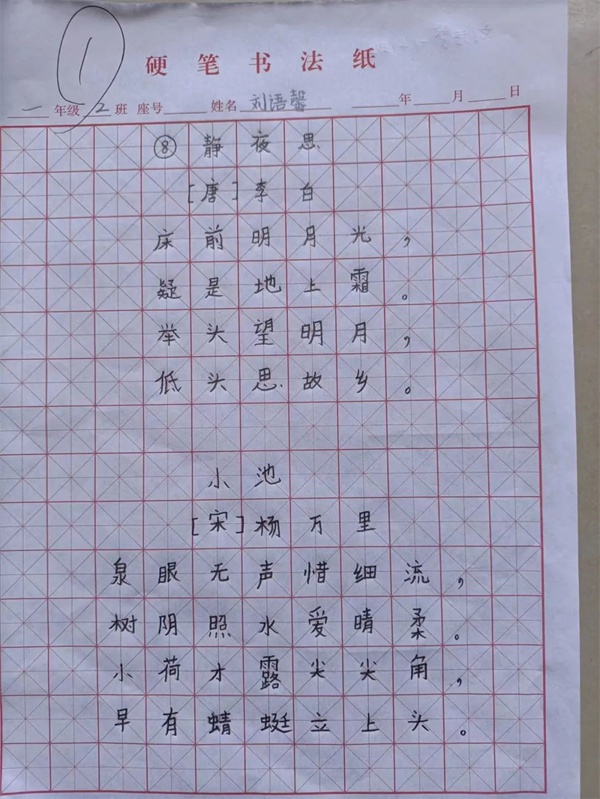 1
硬笔书法纸
一年级 2班 座号 姓名 刘语馨 年 月 日
⑧ 静夜思
[唐] 李白
床前明月光，
疑是地上霜。
举头望明月，
低头思故乡。
小池
[宋] 杨万里
泉眼无声惜细流，
树阴照水爱晴柔。
小荷才露尖尖角，
早有蜻蜓立上头。